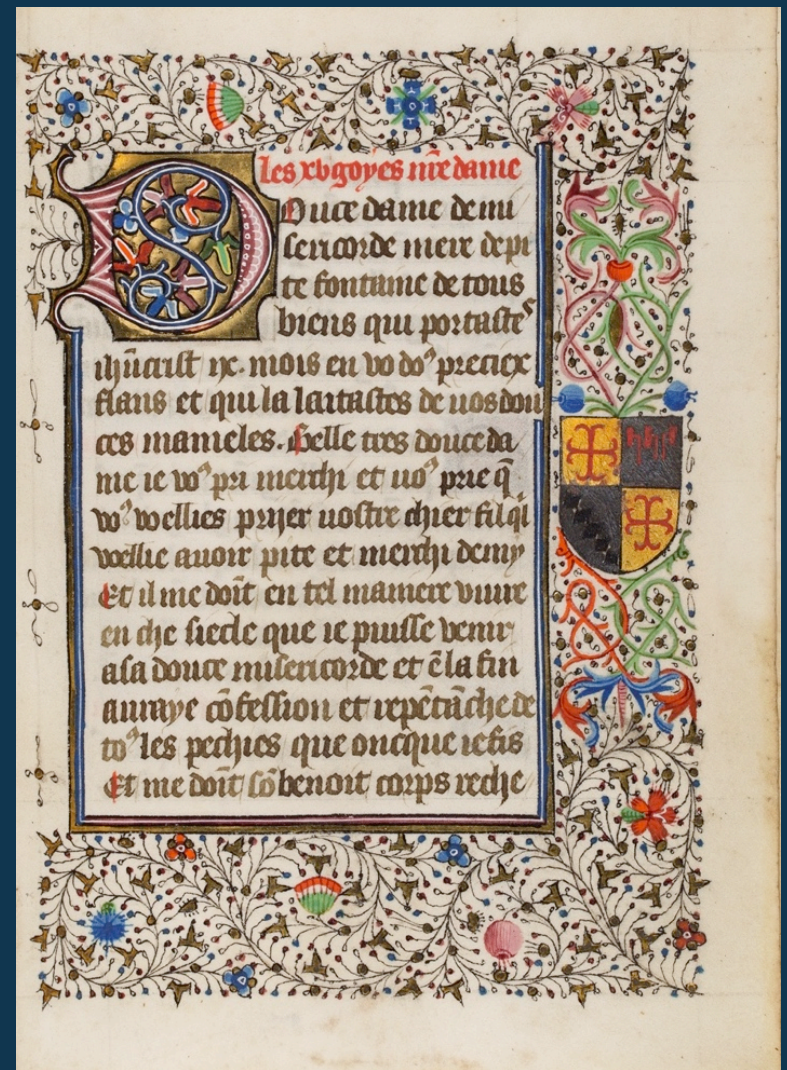 les xv goyes nr̃e dame
Douce dame de mi
sericorde mere de pi
te fontaine de tous
biens qui portaste⁹
ihũcrist ix. mois en vo do⁹ preciex
flans et qui la laitastes de uos dou
ces mameles. Belle tres douce da
me ie vo⁹ pri merchi et uo⁹ prie q̃
vo⁹ voellies priier uostre chier fil q̃l
voellie auoir pite et merchi de my
Et il me doit en tel maniere viure
en che siecle que ie puisse venir
a sa douce misericorde et ẽ la fin
auuraye cõfession et repẽtãche de
to⁹ les pechies que oncque ie fis
Et me doit sõ benoit corps reche